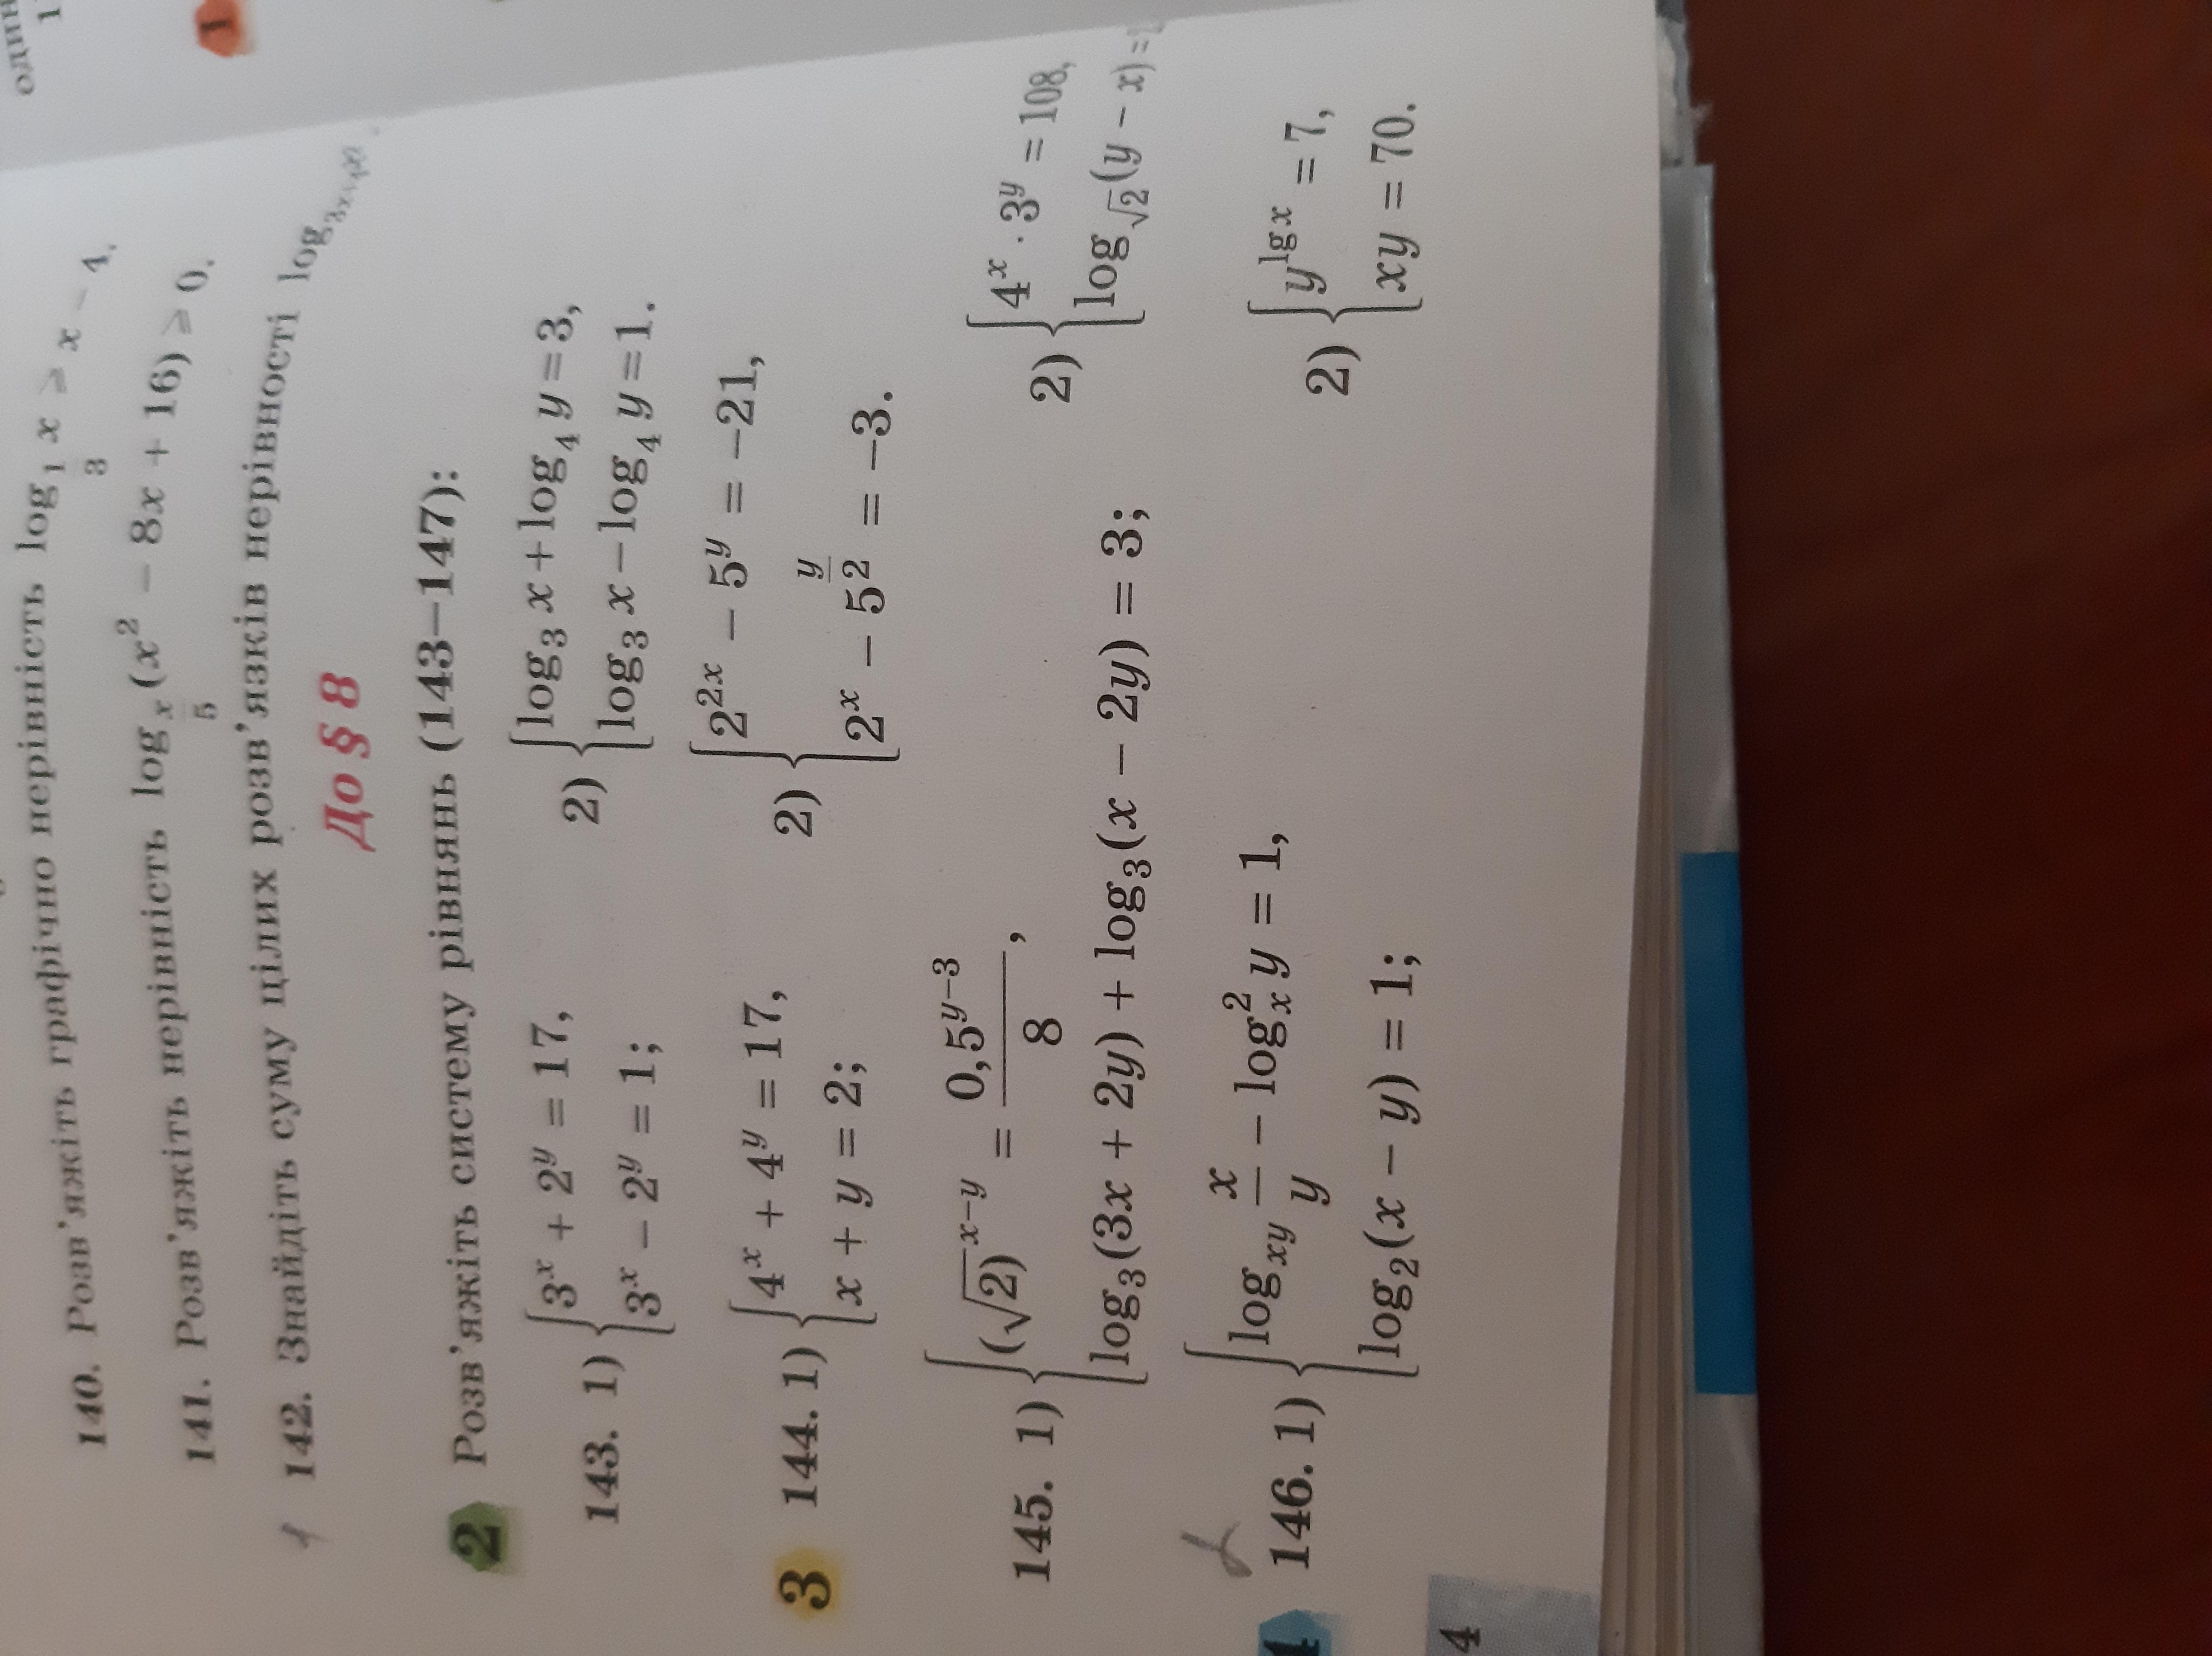 один
1
1
140. Розв'яжіть графічно нерівність log_{1/3} x ⩾ x − 4.
141. Розв'яжіть нерівність log_{x/5}(x² − 8x + 16) ⩾ 0.
142. Знайдіть суму цілих розв'язків нерівності log
До § 8
2 Розв'яжіть систему рівнянь (143—147):
143. 1) { 3^x + 2^y = 17, 2) { log₃ x + log₄ y = 3,
3^x − 2^y = 1; log₃ x − log₄ y = 1.
3 144. 1) { 4^x + 4^y = 17, 2) { 2^{2x} − 5^y = −21,
x + y = 2; 2^x − 5^{y/2} = −3.
145. 1) { (√2)^{x−y} = 0,5^{y−3}/8, 2) { 4^x · 3^y = 108,
log₃(3x + 2y) + log₃(x − 2y) = 3; log_{√2}(y − x) =
4 146. 1) { log_{xy} x/y − log²_x y = 1, 2) { y^{lg x} = 7,
log₂(x − y) = 1; xy = 70.
4